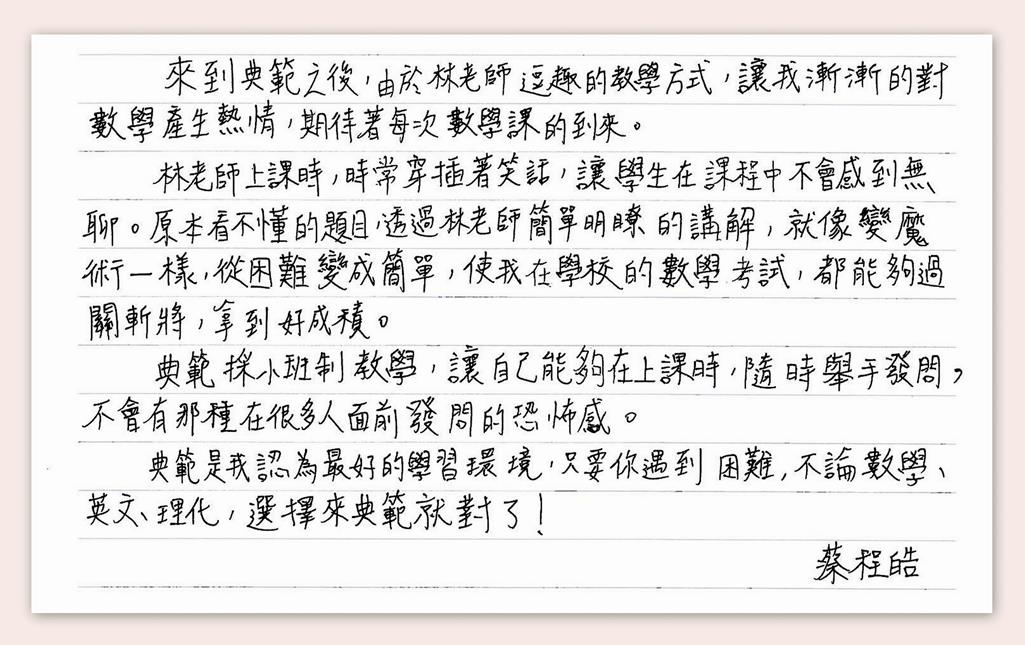 來到典範之後，由於林老師逗趣的教學方式，讓我漸漸的對
數學產生熱情，期待著每次數學課的到來。
林老師上課時，時常穿插著笑話，讓學生在課程中不會感到無
聊。原本看不懂的題目，透過林老師簡單明瞭的講解，就像變魔
術一樣，從困難變成簡單，使我在學校的數學考試，都能夠過
關斬將，拿到好成積。
典範採小班制教學，讓自己能夠在上課時，隨時舉手發問，
不會有那種在很多人面前發問的恐怖感。
典範是我認為最好的學習環境，只要你遇到困難，不論數學、
英文、理化，選擇來典範就對了！
蔡程皓